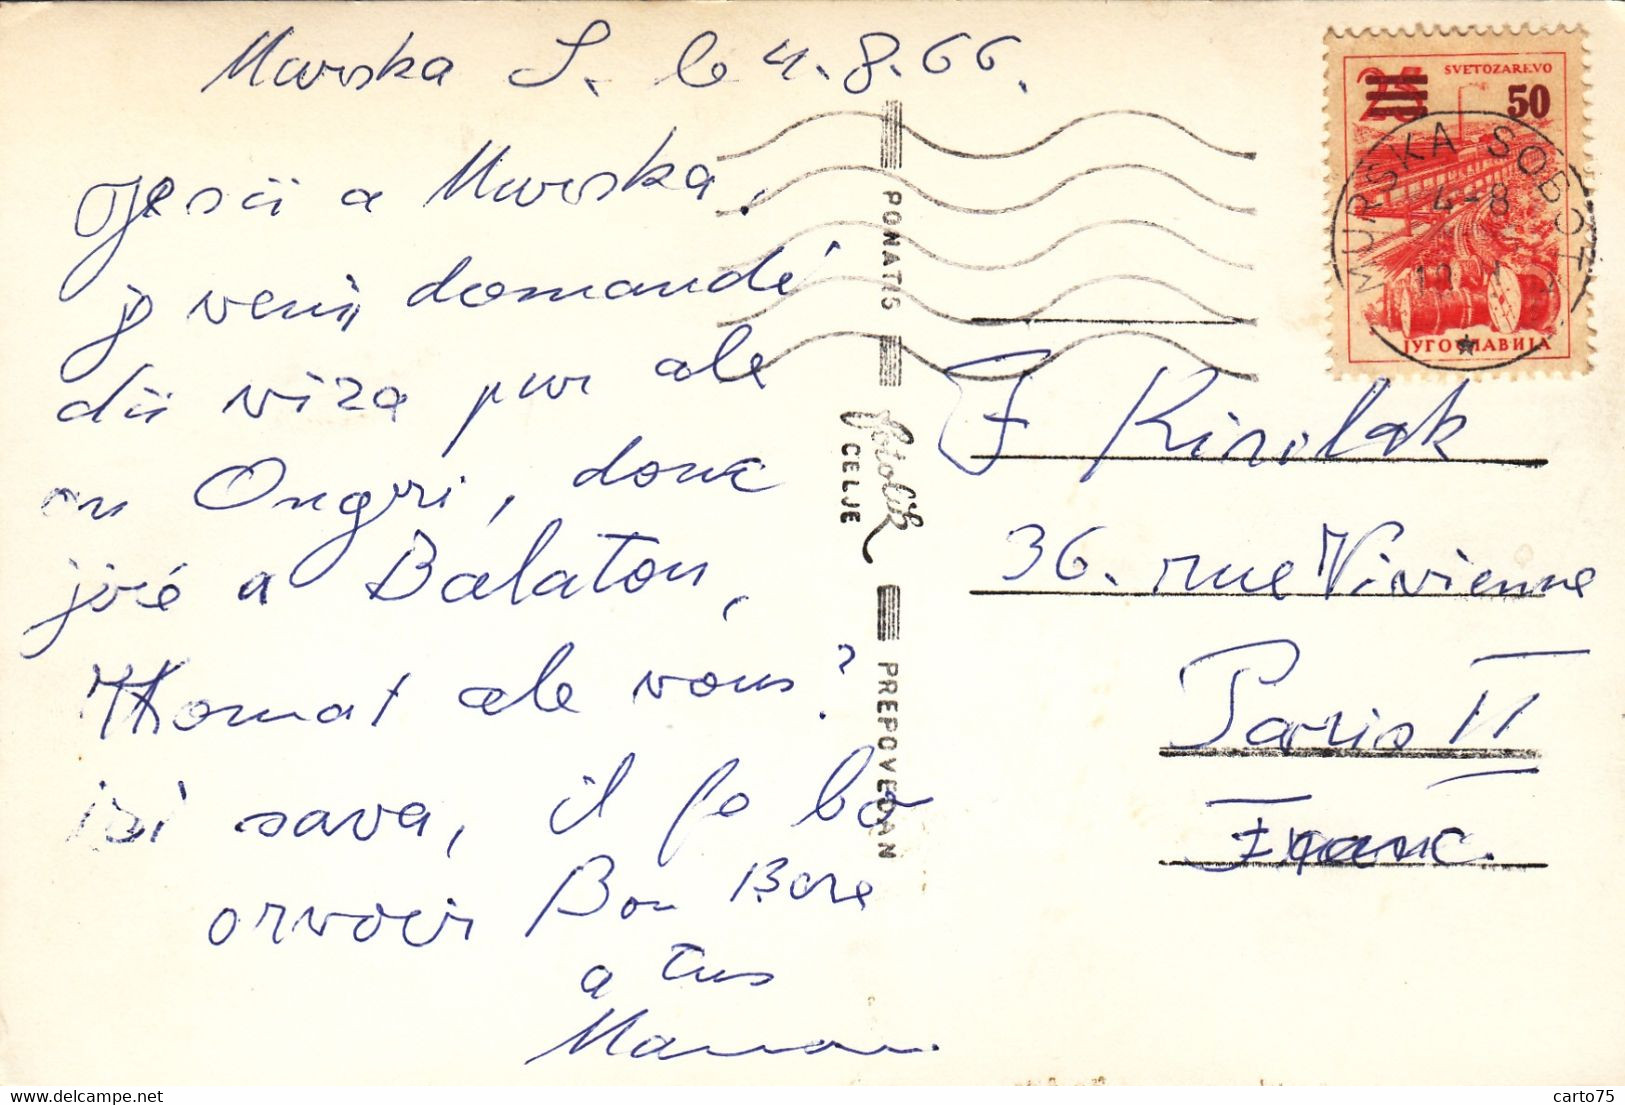 Murska S. le 4.8.66.
Je sui a Murska,
je venij domandé
dü viza pur ale
en Ongri, donc
joré a Balaton,
Komat ale vous?
isi sava, il fe bo
orvoir Bon Bore
a tus
Maman.
PONATIS
fotolik
CELJE
PREPOVEDAN
SVETOZAREVO
25
50
ЈУГОСЛАВИЈА
MURSKA SOBOTA
4-8
F Kirolak
36. rue Vivienne
Paris II
Franc.
delcampe.net
carto75